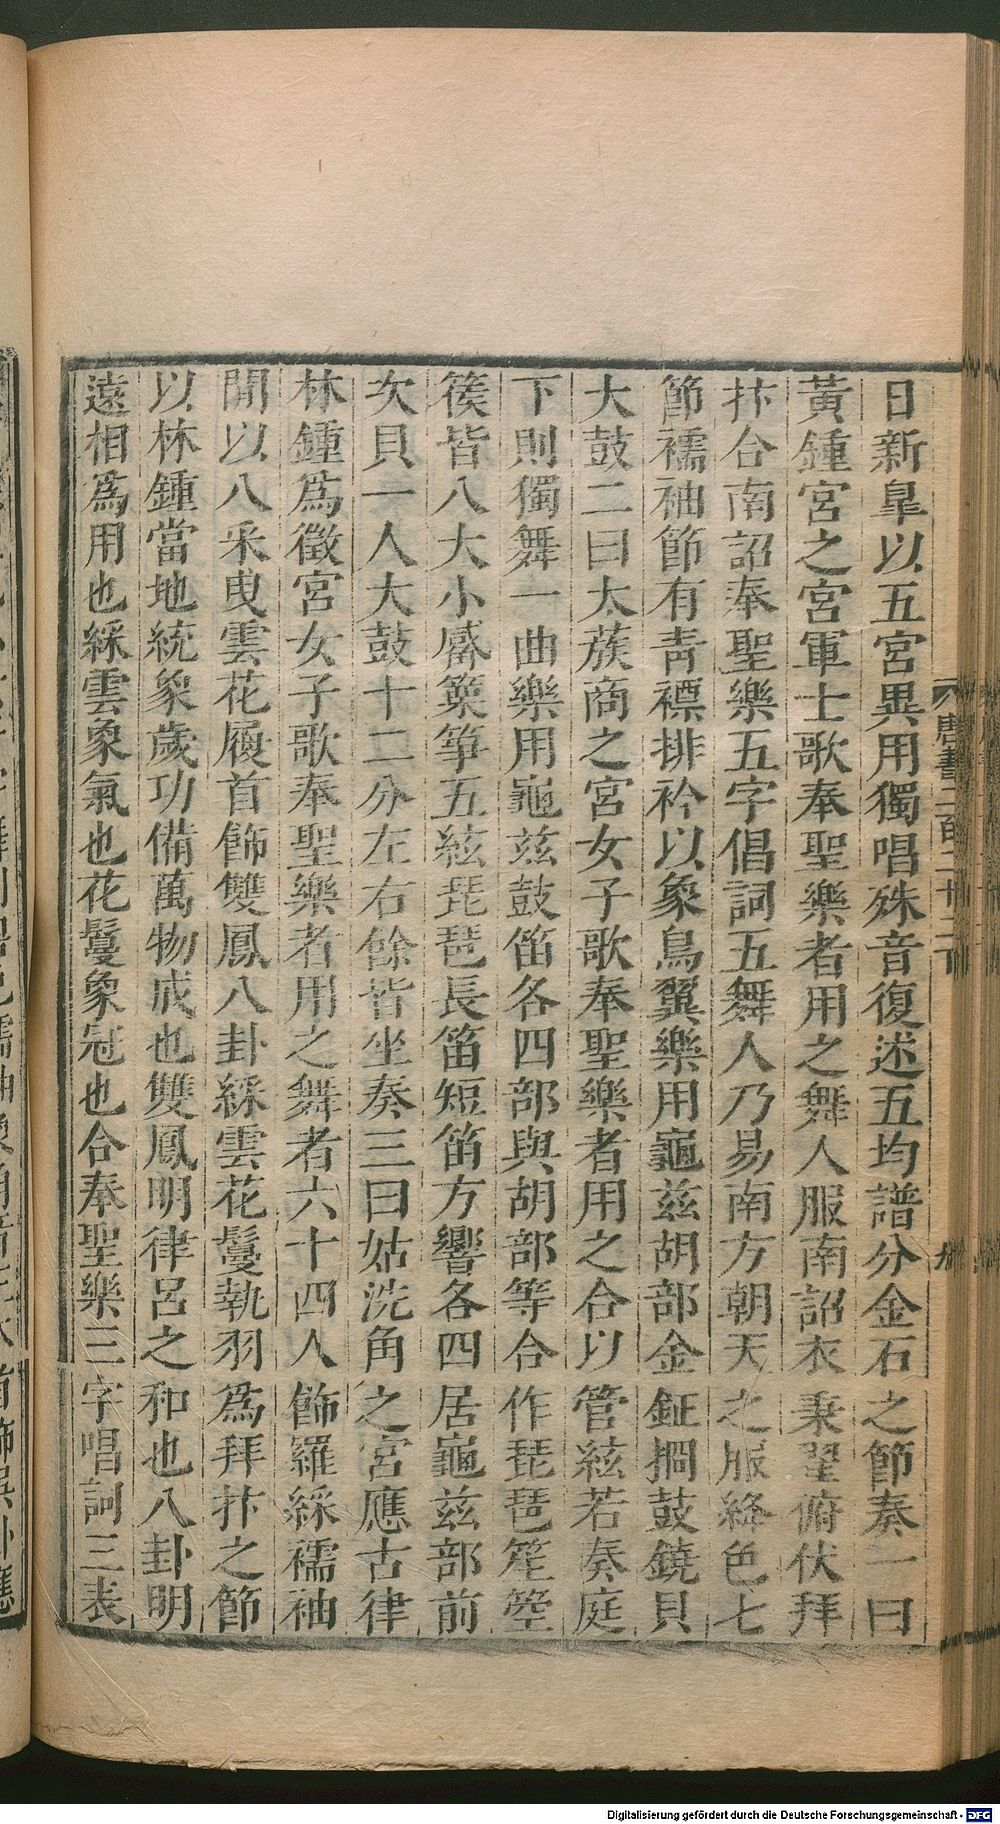 日新皐以五宮異用獨唱殊音復述五均譜分金石之節奏一曰
黃鍾宮之宮軍士歌奉聖樂者用之舞人服南詔衣秉翟俯伏拜
抃合南詔奉聖樂五字倡詞五舞人乃易南方朝天之服絳色七
節襦袖節有青褾排衿以象鳥翼樂用龜茲胡部金鉦掆鼓鐃貝
大鼓二曰太蔟商之宮女子歌奉聖樂者用之合以管絃若奏庭
下則獨舞一曲樂用龜茲鼓笛各四部與胡部等合作琵琶笙箜
篌皆八大小觱篥箏五絃琵琶長笛短笛方響各四居龜茲部前
次貝一人大鼓十二分左右餘皆坐奏三曰姑洗角之宮應古律
林鍾爲徵宮女子歌奉聖樂者用之舞者六十四人飾羅綵襦袖
間以八采曳雲花履首飾雙鳳八卦綵雲花鬘執羽爲拜抃之節
以林鍾當地統象歲功備萬物成也雙鳳明律呂之和也八卦明
遠相爲用也綵雲象氣也花鬘象冠也合奉聖樂三字唱詞三表
唐書二百二十二下
九
Digitalisierung gefördert durch die Deutsche Forschungsgemeinschaft - DFG